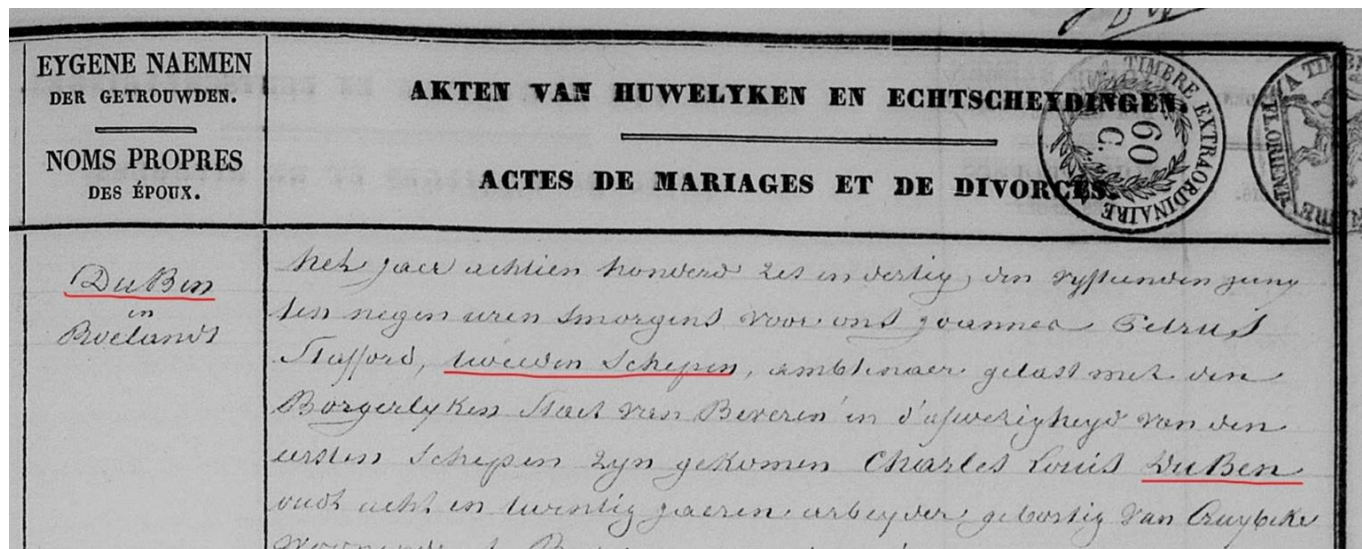 EYGENE NAEMEN
DER GETROUWDEN.
NOMS PROPRES
DES ÉPOUX.
AKTEN VAN HUWELYKEN EN ECHTSCHEYDINGEN.
ACTES DE MARIAGES ET DE DIVORCES.
TIMBRE EXTRAORDINAIRE
60
C.
A TIMB
L.ORIENT.
DuBen
en
Roelandt
het jaer achtien honderd zes en dertig, den vyftienden juny
ten negen uren smorgens voor ons joannes Petrus
Stafford, tweeden Schepen, ambtenaer gelast met den
Borgerlyken Staet van Beveren in d'afwezigheyd van den
eersten Schepen zyn gekomen Charles Louis DuBen
oudt acht en twintig jaeren arbeyder gebortig van Cruybeke